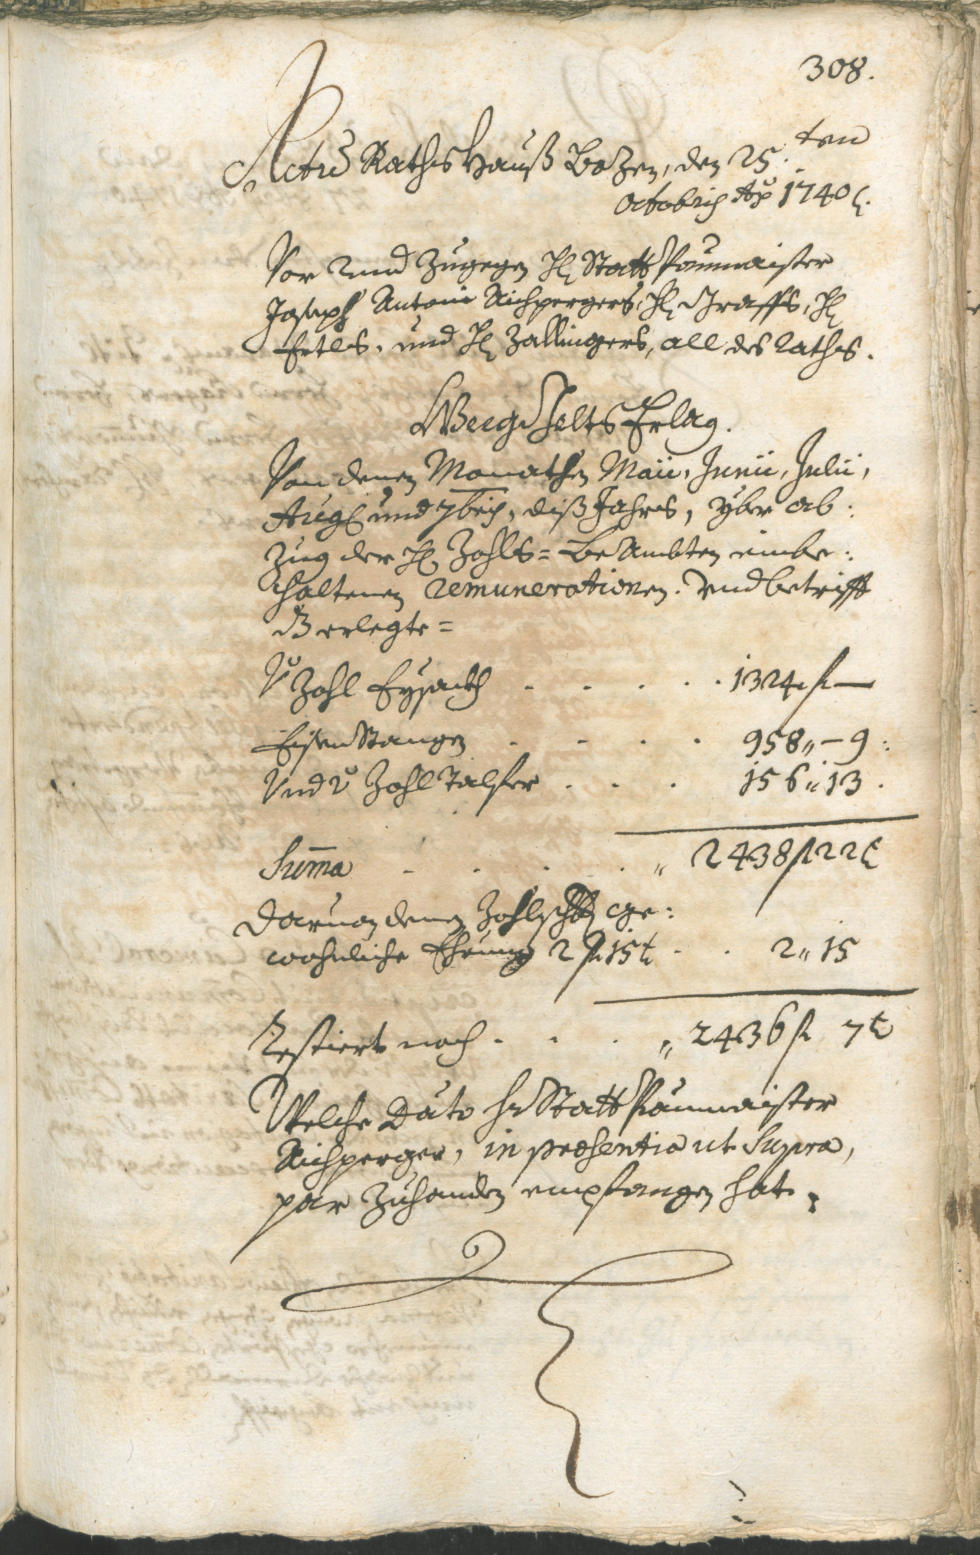 308.
Actũ Rathshauß Bozen, den 25.ten
octobris Aõ 1740.
Vor und zugegen H: Statt Paumaister
Joseph Antoni Aichpergers, H: Graffs, H:
Ertls, und H: Zallingers, all des Raths.
WeegGelts Erlag.
Von denen Monathen Maii, Junii, Julii,
Augs: und 7bris, diß Jahrs, yber ab:
zug der H: Zohls= Be Ambten einbe:
haltenen remunerationen. und betrifft
dz erlegte=
V: Zohl Eysackh . . . . . 1324 f —
Eisen Stangen . . . . 958 „ – 9 :
Und V: Zohl Talfer . . . 156 „ 13 .
Suma̅ . . . . „ 2438 f 22 t
Daruon denen ge:
wohnliche Ehrung 2 f 15 t . . 2 „ 15
Restiert noch . . . „ 2436 f 7 t
Welche Dato Hr Statt Paumaister
Aichperger, in præsentia ut Supra,
par zuhanden empfangen hat.